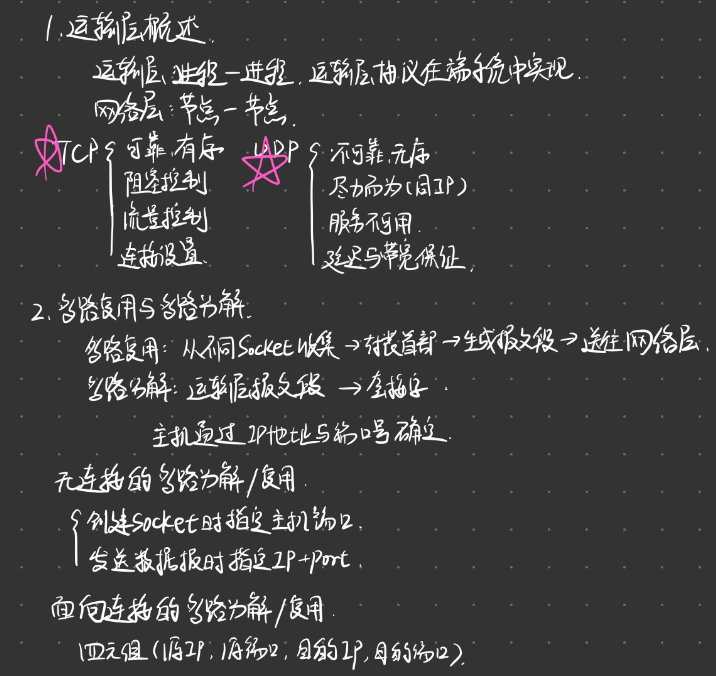 1. 运输层概述
运输层:进程—进程. 运输层协议在端系统中实现.
网络层:节点—节点.
TCP { 可靠,有序 UDP { 不可靠,无序
阻塞控制 尽力而为(同IP)
流量控制 服务不可用
连接设置 延迟与带宽保证.
2. 多路复用与多路分解.
多路复用: 从不同Socket收集→封装首部→生成报文段→送往网络层.
多路分解: 运输层报文段 → 套接字.
主机通过IP地址与端口号确定.
无连接的多路分解/复用
{ 创建Socket时指定主机端口.
发送数据报时指定IP+port.
面向连接的多路分解/复用.
四元组(源IP, 源端口, 目的IP, 目的端口).